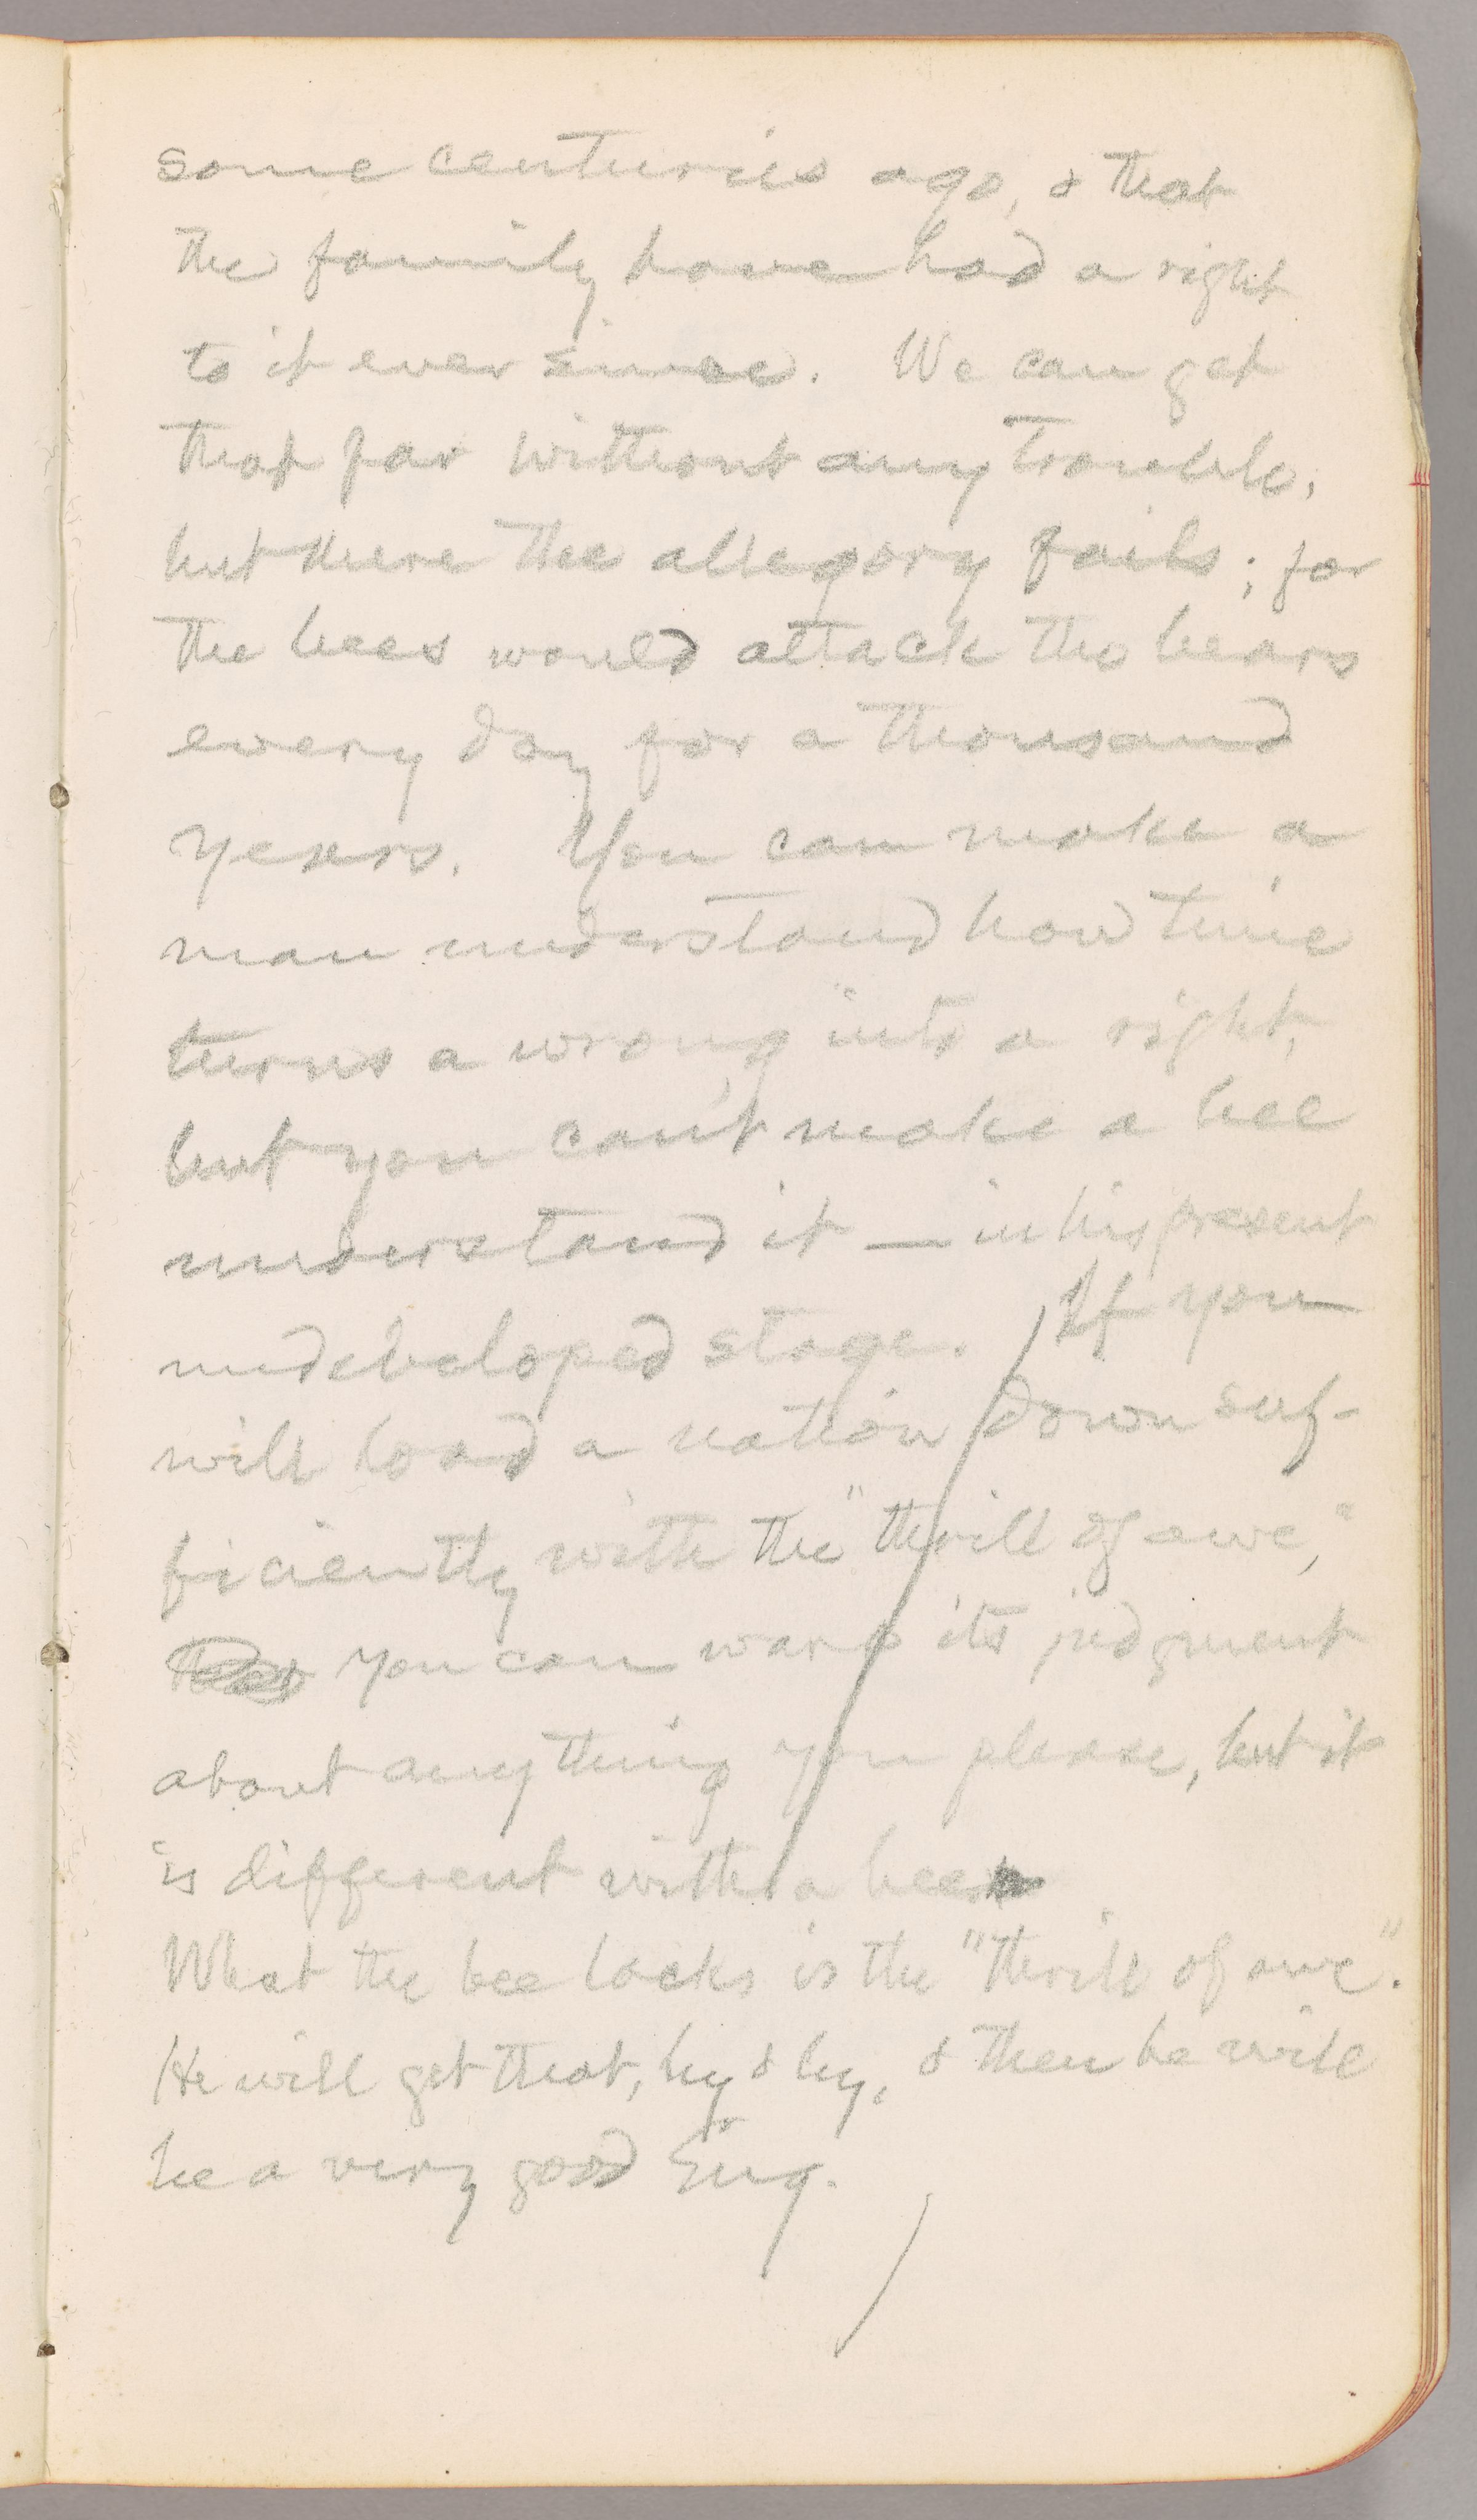 some centuries ago, & that
the family have had a right
to it ever since. We can get
that far without any trouble,
but there the allegory fails; for
the bees would attack the bears
every day for a thousand
years. You can make a
man understand how time
turns a wrong into a right,
but you can't make a bee
understand it — in his present
undeveloped stage. If you
will load a nation down suf-
ficiently with the "thrill of awe,"
you can warp its judgment
about anything you please, but it
is different with a bee.
What the bee lacks is the "thrill of awe".
He will get that, by & by, & then he will
be a very good Eng.